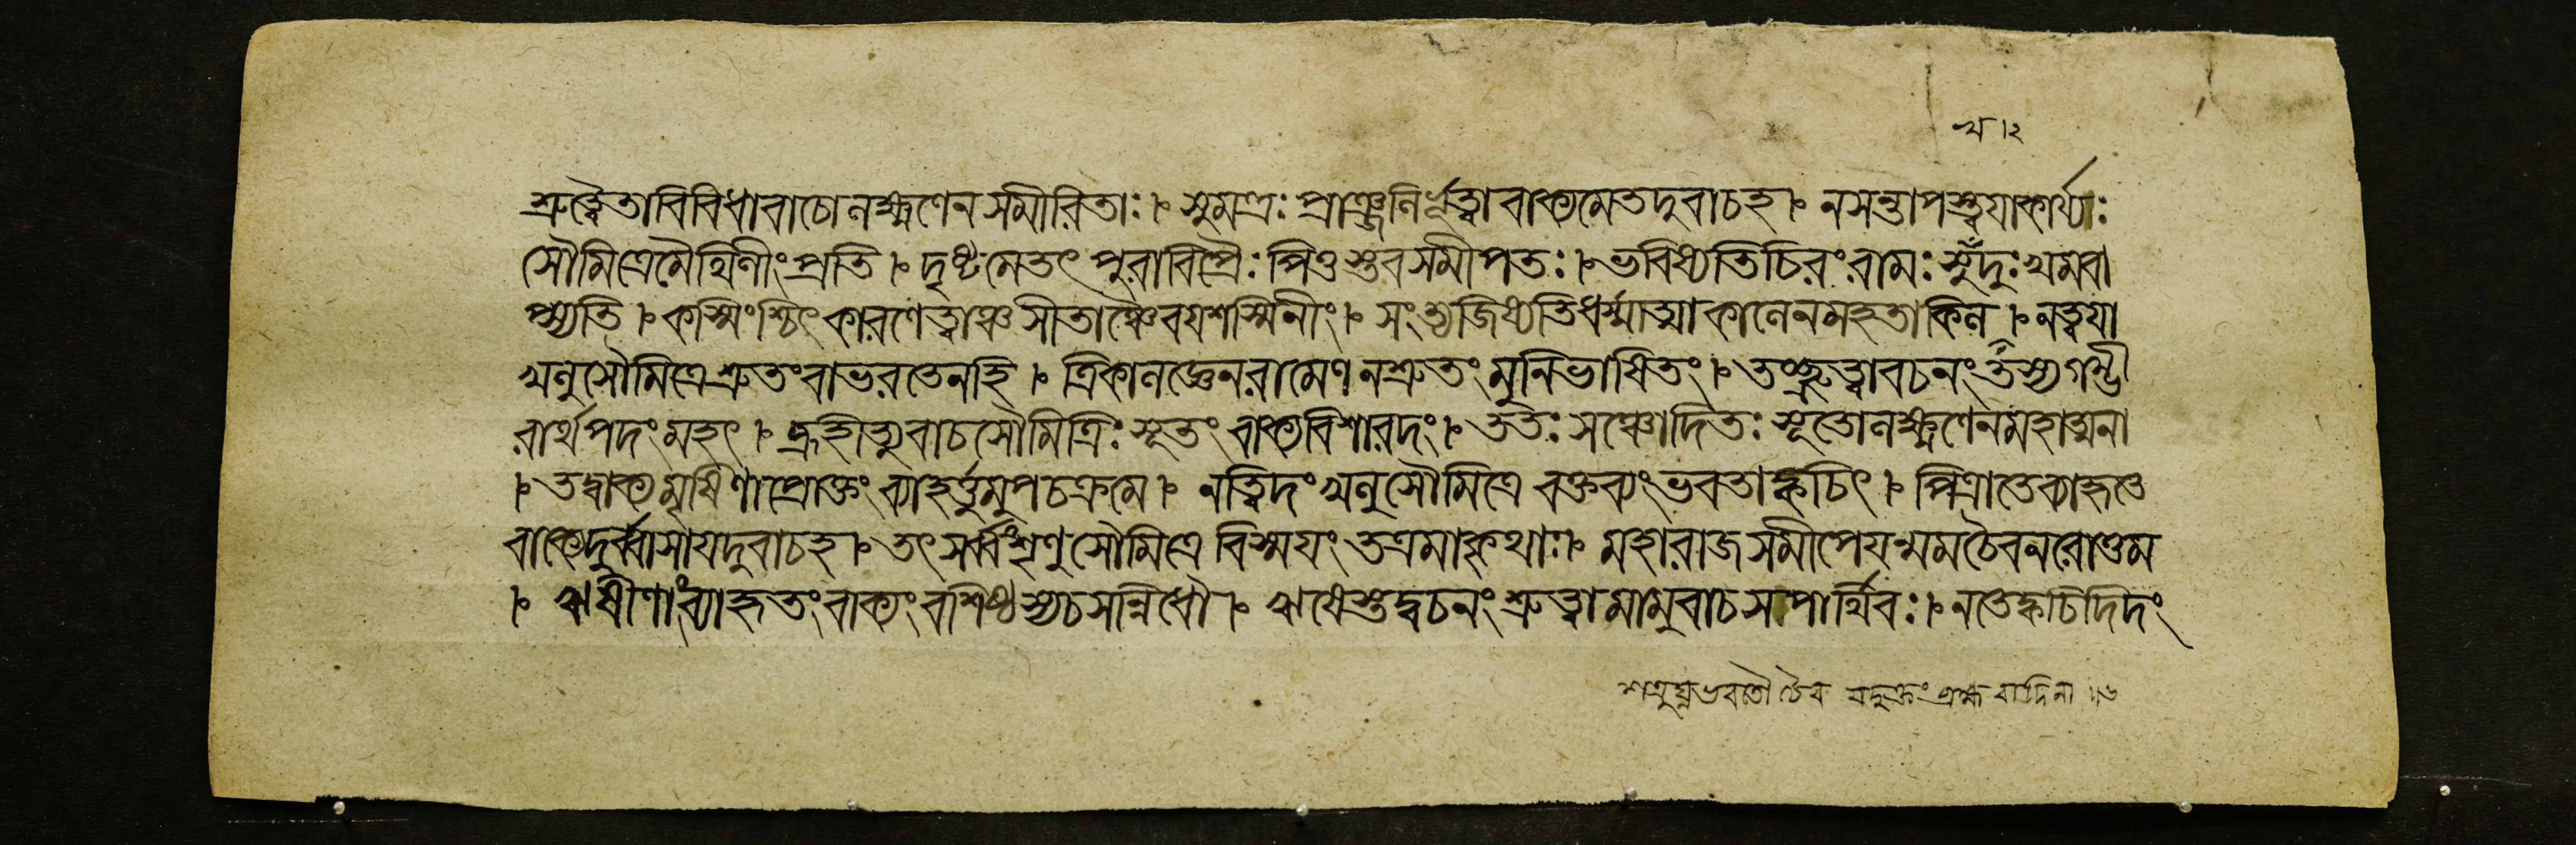 খ।২
শ্রুত্বৈতাবিবিধাবাচোলক্ষ্মণেনসমীরিতাঃ। সুমন্ত্রঃ প্রাঞ্জলির্ভূত্বা বাক্যমেতদুবাচহ। নসন্তাপস্ত্বয়াকার্য্যঃ
সৌমিত্রেমৈথিলীংপ্রতি। দৃষ্টমেতৎ পুরাবিপ্রৈঃ পিতুস্তবসমীপতঃ। ভবিষ্যতিচিরংরামঃ সুদুঃখমবা
প্স্যতি। কস্মিংশ্চিৎকারণেত্বাঞ্চসীতাঞ্চৈবযশস্বিনীং। সংত্যজিষ্যতিধর্ম্মাত্মাকালেনমহতাকিল। নত্বয়া
খলুসৌমিত্রেশ্রুতংবাভরতেনহি। ত্রিকালজ্ঞেনরামেণনশ্রুতংমুনিভাষিতং। তচ্ছ্রুত্বাবচনংতস্যগম্ভী
রার্থপদংমহৎ। ব্রূহীত্যুবাচসৌমিত্রিঃ সূতং বাক্যবিশারদং। ততঃ সঞ্চোদিতঃ সূতোলক্ষ্মণেনমহাত্মনা
। তদ্বাক্যমৃষিণাপ্রোক্তং ব্যাহর্ত্তুমুপচক্রমে। নত্বিদংখলুসৌমিত্রে বক্তব্যংভবতাক্বচিৎ। পিত্রাতেব্যাহৃতে
বাক্যেদুর্ব্বাসাযদুবাচহ। তৎসর্ব্বংশৃণুসৌমিত্রে বিস্ময়ং তত্রমাকৃথাঃ। মহারাজসমীপেযন্মমচৈবনরোত্তম
। ঋষীণাংব্যাহৃতংবাক্যংবশিষ্ঠস্যচসন্নিধৌ। ঋষেস্তুদ্বচনংশ্রুত্বামামুবাচসপার্থিবঃ। নতেক্বচিদিদং
শত্রুঘ্নভরতৌ চৈব যদুক্তং ব্রহ্মবাদিনা ।।৬